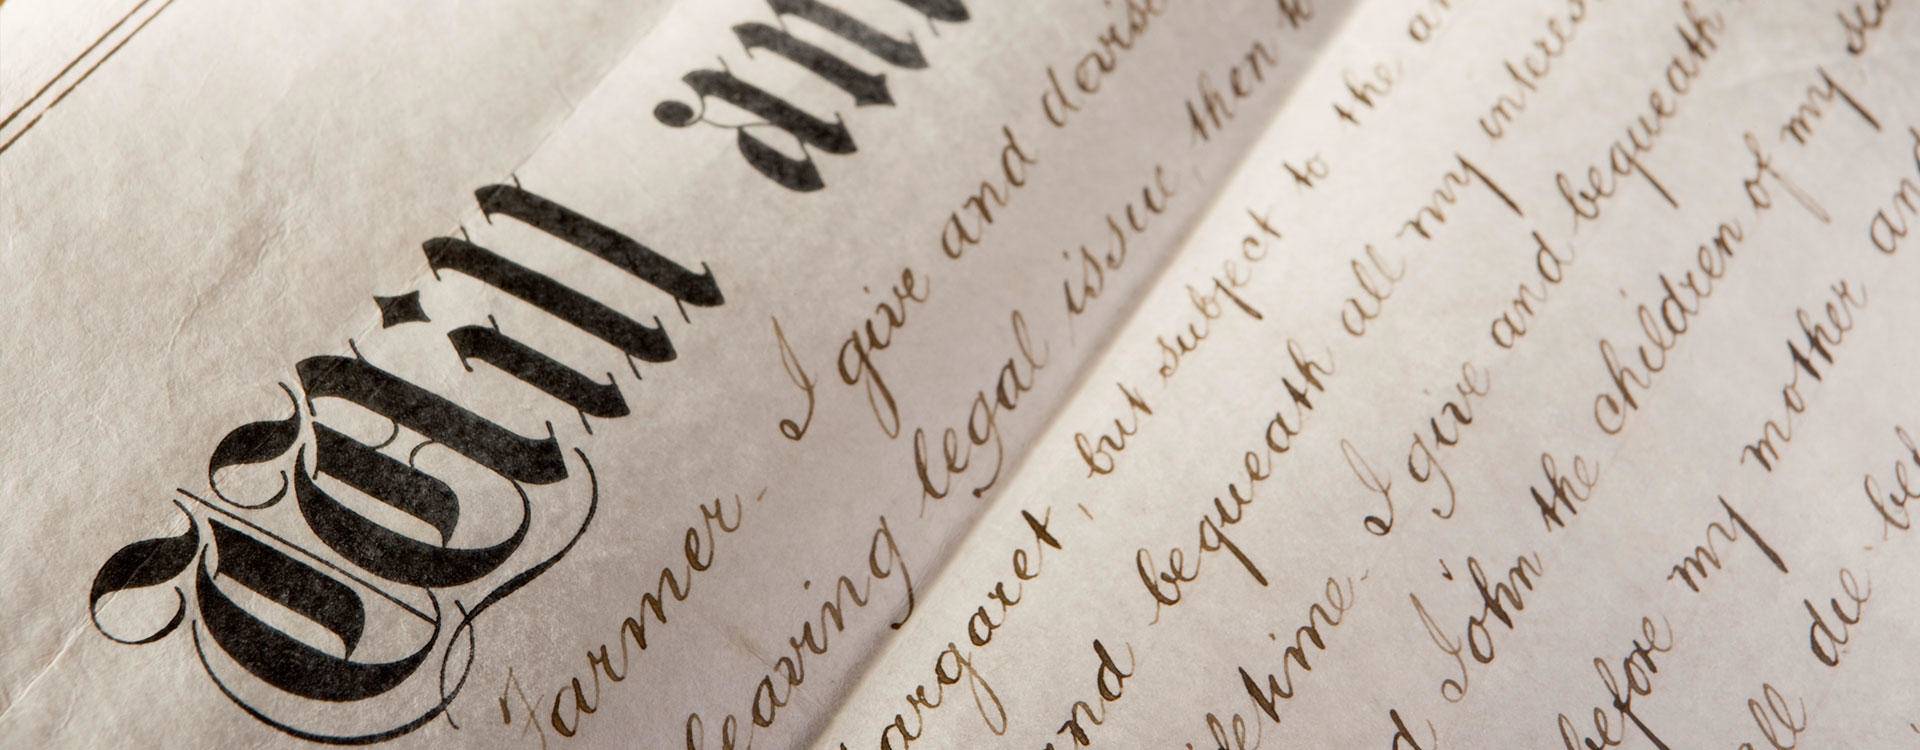 Will an
Farmer - I give and devise
leaving legal issue, then
argaret, but subject to the an
nd bequeath all my interes
fetime - I give and bequeath
d John the children of my
before my mother and
all die be